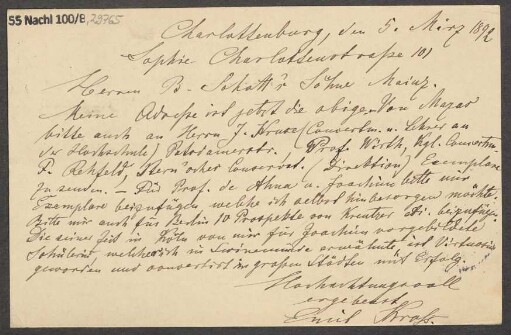 55 Nachl 100/B, 29765
Charlottenburg, den 5. März 1892
Sophie Charlottenstrasse 101
Herren B. Schott's Söhne Mainz.
Meine Adresse ist jetzt die obige. Von Mazas
bitte auch an Herrn J. Kruse (Concertm. u. Lehrer an
der Hochschule) Potsdamerstr. Prof. Wirth, Kgl. Concertm.
F. Rehfeld, Stern'sches Conservat. (Direktion) Exemplare
zu senden. – Für Prof. de Ahna u. Joachim bitte mir
Exemplare beizufügen, welche ich selbst hinbesorgen möchte.
Bitte mir auch für Berlin 10 Prospekte von Kreutzer beizufügen.
Die seiner Zeit in Köln von mir für Joachim vorgebildete
Schülerin, welche ich in Swinemünde erwähnte, ist Virtuosin
geworden und concertirt in großen Städten mit Erfolg.
Hochachtungsvoll
ergebenst
Emil Kross.